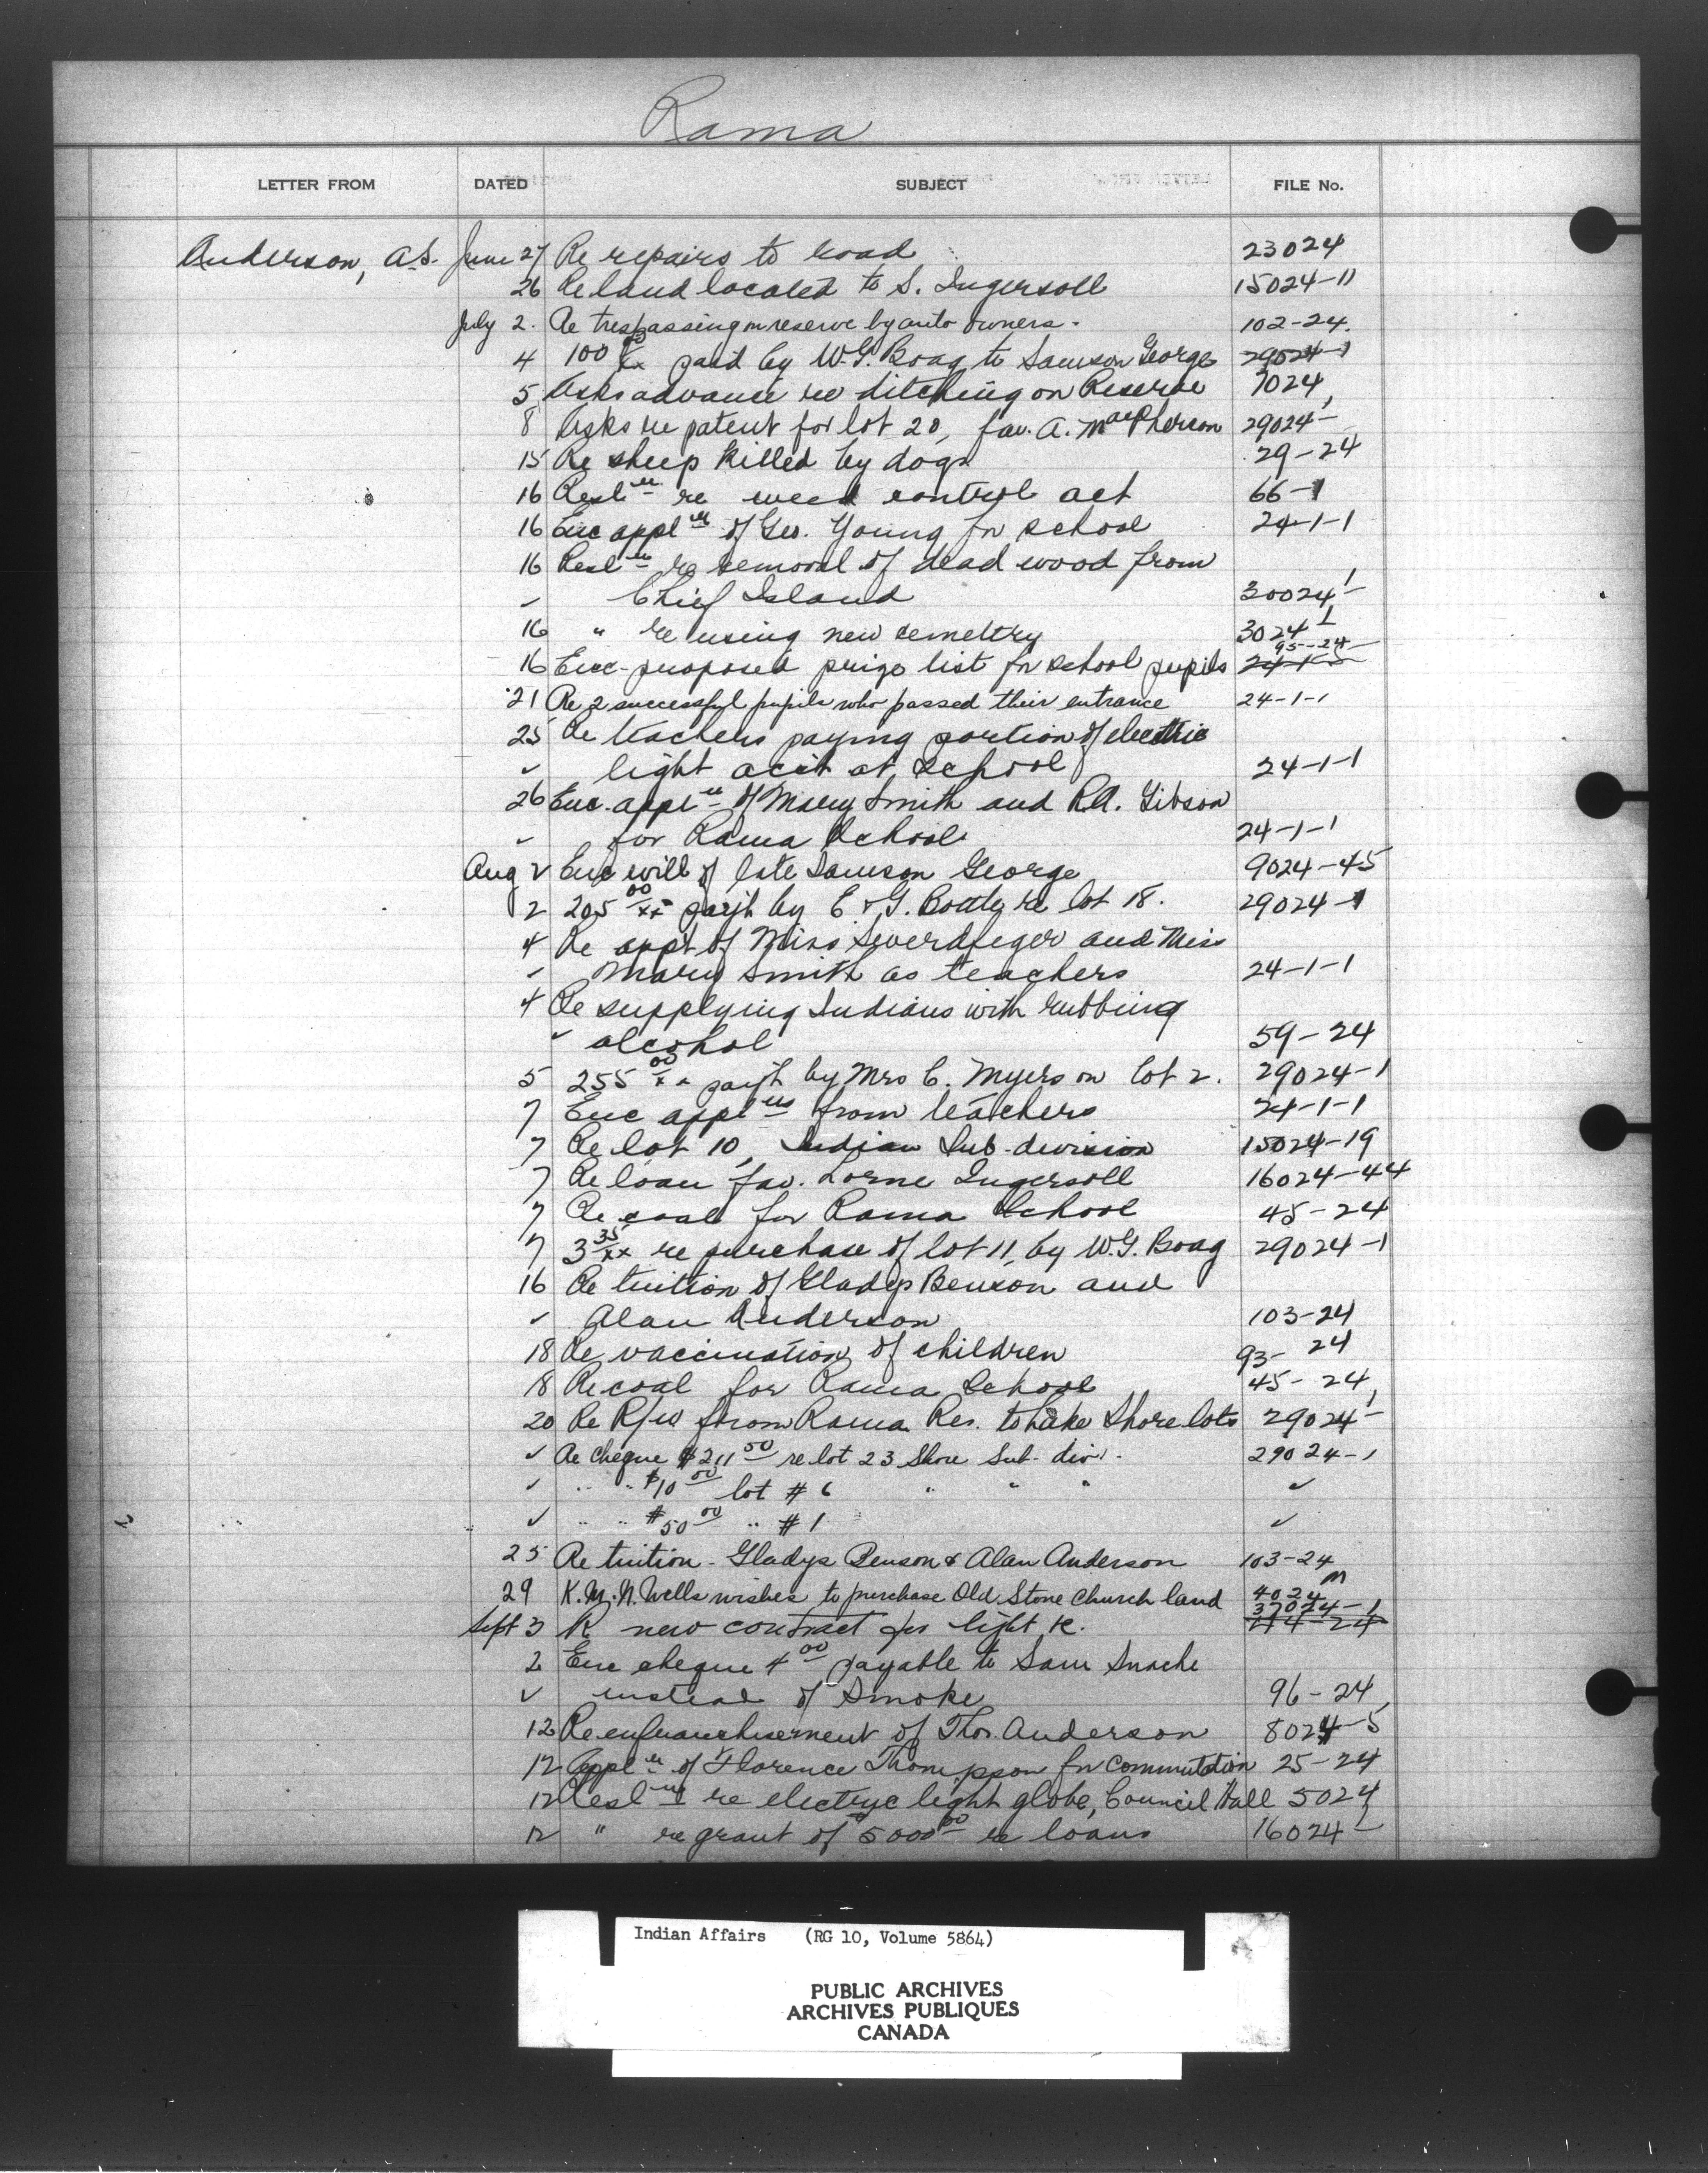 Rama
LETTER FROM DATED SUBJECT FILE No.
Anderson, A.S. June 27 Re repairs to road 23024
26 Re land located to S. Ingersoll 15024-11
July 2. Re trespassing on reserve by auto owners. 102-24.
4 100 00/xx paid by W.G. Boag to Samson George 29024-1
5 Asks advance re ditching on Reserve 7024
8 Asks re patent for lot 20, fav. A. MacPherson 29024-1
15 Re sheep killed by dogs 29-24
16 Resltn re weed control act 66-1
16 Enc appltn of Geo. Young for school 24-1-1
16 Resltn re removal of dead wood from
✓ Chief Island 30024-1
16 " re using new cemeltry 3024-1
16 Enc proposed prize list for school pupils 95-24
21 Re 2 successful pupils who passed their entrance 24-1-1
25 Re teachers paying portion of electric
✓ light acct at school 24-1-1
26 Enc. appltn of Mary Smith and R.A. Gibson
✓ for Rama School 24-1-1
Aug 2 Enc will of late Samson George 9024-45
2 205 00/xx payt by E. & G. re lot 18. 29024-1
4 Re appt of Miss and Miss
✓ Mary Smith as teachers 24-1-1
4 Re supplying Indians with rubbing
✓ alcohol 59-24
5 255 00/xx payt by Mrs C. Myers on lot 2. 29024-1
7 Enc appltns from teachers 24-1-1
7 Re lot 10, Indian Sub-division 15024-19
7 Re loan fav. Lorne Ingersoll 16024-44
7 Re coal for Rama School 45-24
7 3 35/xx re purchase of lot 11, by W.G. Boag 29024-1
16 Re tuition of Gladys Benson and
✓ Alan Anderson 103-24
18 Re vaccination of children 93-24
18 Re coal for Rama School 45-24
20 Re R/W from Rama Res. to Lake Shore lots 29024-1
✓ Re cheque $211 50 re lot 23 Shore Sub-div. 29024-1
✓ " " $10 00 lot # 6 " " " ✓
✓ " " $50 00 " # 1 ✓
25 Re tuition - Gladys Benson & Alan Anderson 103-24
29 K.M.N. Wells wishes to purchase Old Stone Church land 4024 m
37024-1
Sept 3 R new contract for light &c. 44-24
2 Enc cheque 4 00 payable to Sam Snache
✓ instead of Smoke 96-24
12 Re enfranchisement of Thos. Anderson 8024-5
12 Appltn of Florence Thompson for commutation 25-24
12 Resltn re electric light globe, Council Hall 5024
12 " re grant of 5000 00 re loans 16024-1
Indian Affairs (RG 10, Volume 5864)
PUBLIC ARCHIVES
ARCHIVES PUBLIQUES
CANADA